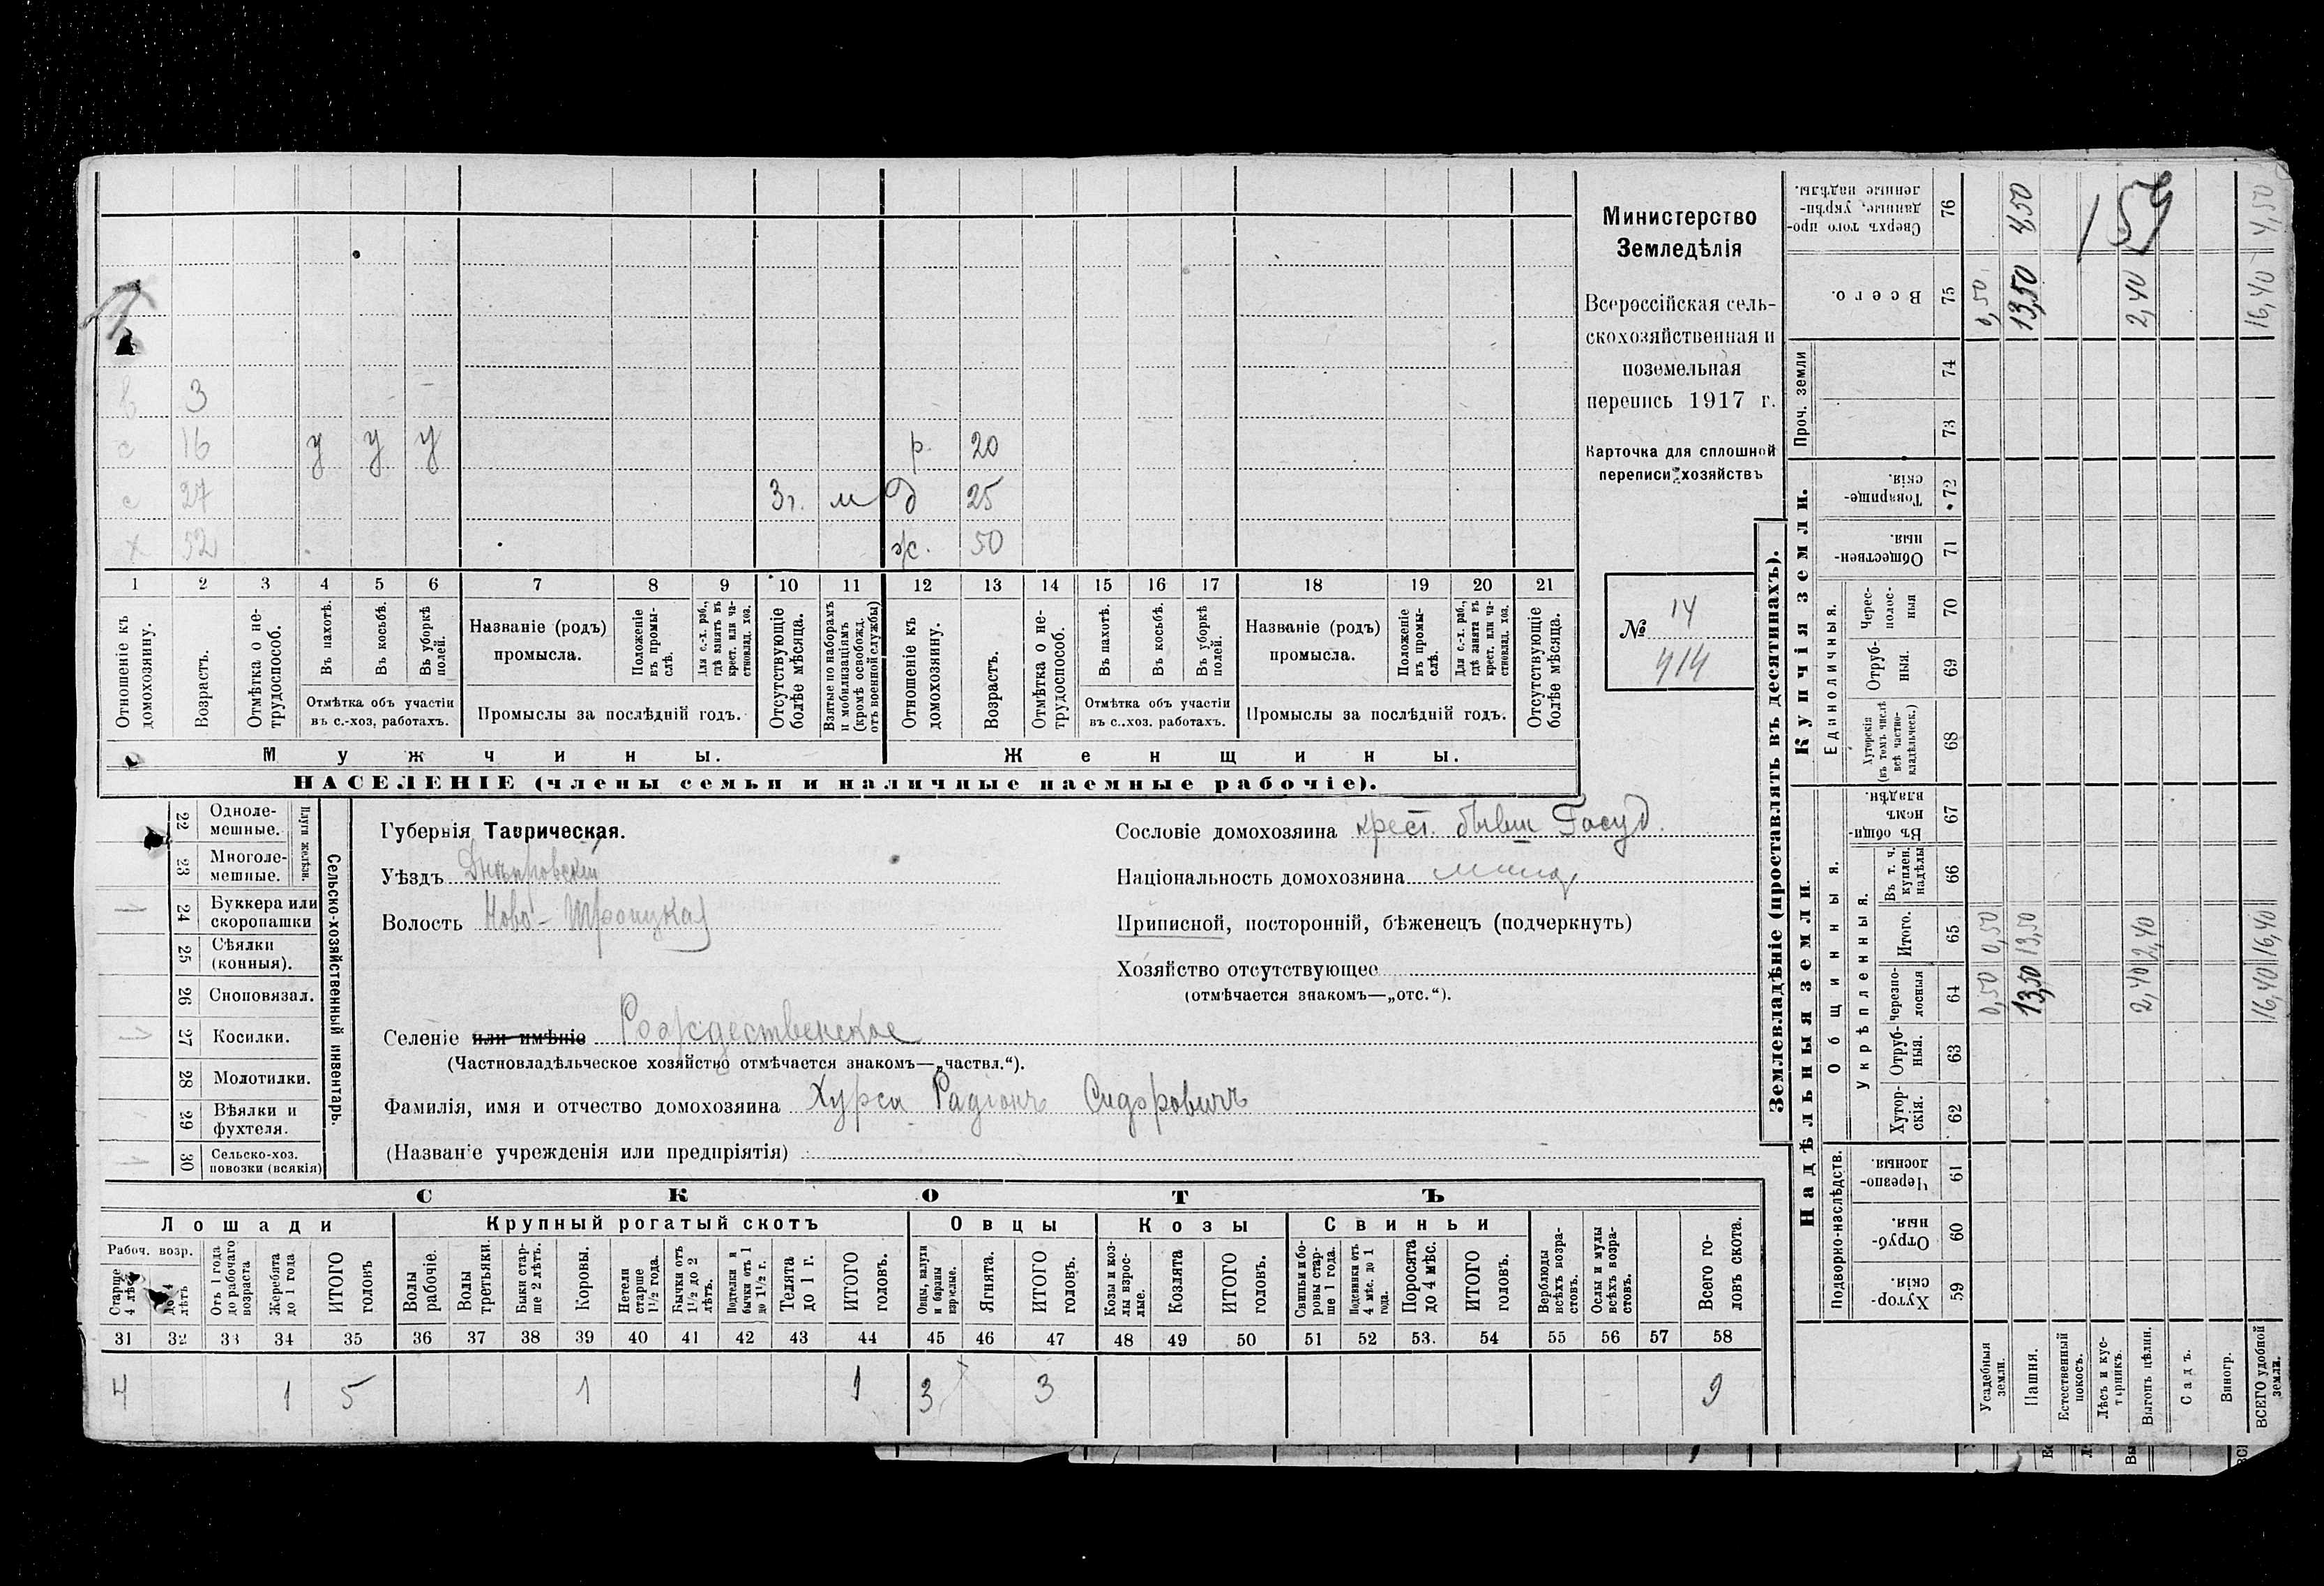 в 3
с 16 у у у р. 20
с 27 3г. м д 25
х 52 ж. 50
1 2 3 4 5 6 7 8 9 10 11 12 13 14 15 16 17 18 19 20 21
Отношеніе къ домохозяину.
Возрастъ.
Отмѣтка о не-
трудоспособ.
Въ пахотѣ.
Въ косьбѣ.
Въ уборкѣ
полей.
Отмѣтка объ участіи
въ с.-хоз, работахъ.
Названіе (родъ)
промысла.
Положеніе
въ промы-
слѣ.
Для с.-х. раб.,
гдѣ занятъ въ
крест. или ча-
стновлад. хоз.
Промыслы за послѣдній годъ.
Отсутствующіе
болѣе мѣсяца.
Взятые по наборамъ
и мобилизаціямъ
(кромѣ освобожд.
отъ военной службы)
Отношеніе къ
домохозяину.
Возрастъ.
Отмѣтка о не-
трудоспособ.
Въ пахотѣ.
Въ косьбѣ.
Въ уборкѣ
полей.
Отмѣтка объ участіи
въ с..хоз. работахъ.
Названіе (родъ)
промысла.
Положеніе
въ промы-
слѣ.
Для с.-х. раб.,
гдѣ занята въ
крест. или ча-
стновлад. хоз.
Промыслы за послѣдній годъ.
Отсутствующіе
болѣе мѣсяца.
Мужчины.
Женщины.
НАСЕЛЕНІЕ (члены семьи и наличные наемные рабочіе).
Министерство
Земледѣлія
Всероссійская сель-
скохозяйственная и
поземельная
перепись 1917 г.
Карточка для сплошной
переписи хозяйствъ
№ 14
414
22 Одноле-
мешные.
23 Многоле-
мешные.
Плуги желѣзн.
24 Буккера или
скоропашки
25 Сѣялки
(конныя).
26 Сноповязал.
27 Косилки.
28 Молотилки.
29 Вѣялки и
фухтеля.
30 Сельско-хоз.
повозки (всякія)
Сельско-хозяйственный инвентарь.
Губернія Таврическая.
Уѣздъ Днѣпровскій
Волость Ново-Троицкая
Селеніе или имѣніе Рождественское
(Частновладѣльческое хозяйство отмѣчается знакомъ—„частвл.“).
Фамилія, имя и отчество домохозяина Хурса Радіонъ Сидоровичъ
(Названіе учрежденія или предпріятія)
Сословіе домохозяина крест. бывш Госуд.
Національность домохозяина
Приписной, посторонній, бѣженецъ (подчеркнуть)
Хозяйство отсутствующее
(отмѣчается знакомъ—„отс.“).
СКОТЪ
Лошади
Рабоч. возр.
Старше
4 лѣтъ
до 4
лѣтъ
Отъ 1 года
до рабочаго
возраста
Жеребята
до 1 года
ИТОГО
головъ
Крупный рогатый скотъ
Волы
рабочіе.
Волы
третьяки.
Быки стар-
ше 2 лѣтъ.
Коровы.
Нетели
старше
1½ года.
Бычки отъ
1½ до 2
лѣтъ.
Подтелки и
бычки отъ 1
до 1½ г.
Телята
до 1 г.
ИТОГО
головъ.
Овцы
Овцы, валухи
и бараны
взрослые.
Ягнята.
ИТОГО
головъ.
Козы
Козы и коз-
лы взрос-
лые.
Козлята
ИТОГО
головъ.
Свиньи
Свиньи бо-
ровы стар-
ше 1 года.
Подсвинки отъ
4 мѣс. до 1
года.
Поросята
до 4 мѣс.
ИТОГО
головъ.
Верблюды
всѣхъ возра-
стовъ.
Ослы и мулы
всѣхъ возра-
стовъ.
Всего го-
ловъ скота.
31 32 33 34 35 36 37 38 39 40 41 42 43 44 45 46 47 48 49 50 51 52 53. 54 55 56 57 58
4 1 5 1 1 3 3 9
Землевладѣніе (проставлять въ десятинахъ).
159
Сверхъ того про-
данные, укрѣп-
ленные надѣлы.
76
4,50
4,50
Всего.
75
0,50
13,50
2,40
16,40
Проч. земли
74
73
Купчія земли.
Товарище-
скія.
72
Обществен-
ныя.
71
Единоличныя.
Черес-
полос-
ныя
70
Отруб-
ныя.
69
Хуторскія
(въ томъ числѣ
всѣ частно-
владѣльческ.)
68
Надѣльныя земли.
Общинныя.
Въ общи-
номъ
владѣн.
67
Укрѣпленныя.
Въ т. ч.
куплен.
надѣлы
66
Итого.
65
0,50
13,50
2,40
16,40
Черезпо-
лосныя
64
0,50
13,50
2,40
16,40
Отруб-
ныя.
63
Хутор-
скія.
62
Подворно-наслѣдств.
Черезпо-
лосныя.
61
Отруб-
ныя.
60
Хутор-
скія.
59
Усадебныя
земли.
Пашня.
Естественный
покосъ.
Лѣсъ и кус-
тарникъ.
Выгонъ цѣлин.
Садъ.
Виногр.
ВСЕГО удобной
земли.